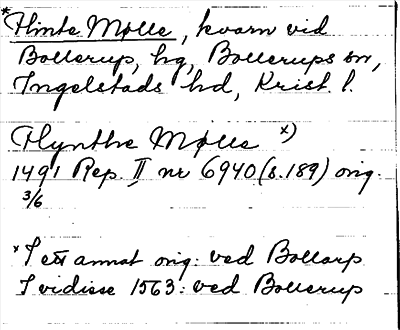 *Flinte Mølle, kvarn vid
Bollerup, hg, Bollerups sn,
Ingelstads hd, Krist. l.
Flynthe Mølle x)
1491 Rep. II nr 6940 (s. 189) orig.
3/6
x I ett annat orig: ved Bollarp
I vidisse 1563: ved Bollerup